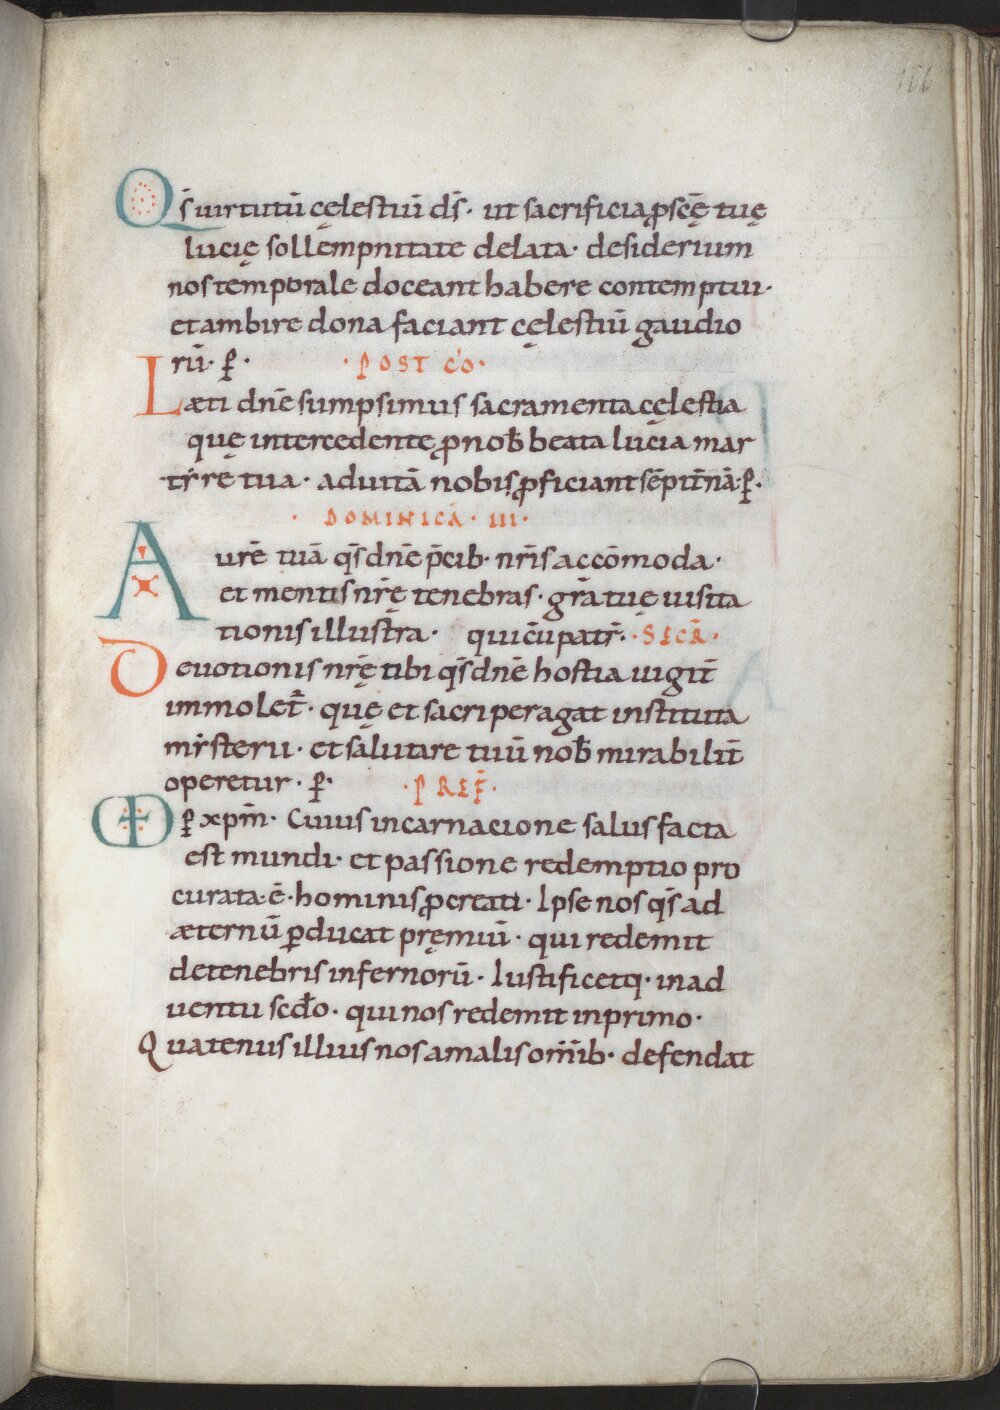 166
Qs̄ uirtutū cęlestiū ds̄· ut sacrificia ꝓ scę̄ tuę
lucię sollēmpnitate delata· desiderium
nos temporale doceant habere contemptui·
et ambire dona faciant cęlestiū gaudio
rū· p̱· ·POST CO·
Læti dn̄e sumpsimus sacramenta cęlestia
quę intercedente ꝓ nob̄ beata lucia mar
tẏre tua· ad uitā nobis ꝓficiant sēpit̄nā· p̱·
· DOMINICA· III·
Aurē tuā qs̄ dn̄e p̄cib· nr̄is accōmoda·
et mentis nr̄ę tenebras· gr̄a tuę uisita
tionis illustra· qui cū patr̄· ·SECR̄·
Deuotionis nr̄ę tibi qs̄ dn̄e hostia uigit̄
immolet᷑· quę et sacri peragat instituta
mẏsterii· et salutare tuū nob̄ mirabilit̄
operetur· p̱· ·PREF̄·
UD p̱ xpm̄· Cuius incarnacione salus facta
est mundi· et passione redemptio pro
curata· ē· hominis ꝓcreati· Ipse nos qs̄ ad
æternū ꝑducat pręmiū· qui redemit
de tenebris infernorū· Iustificetq· in ad
uentu scd̄o· qui nos redemit in primo·
Quatenus illius nos a malis om̄ib· defendat